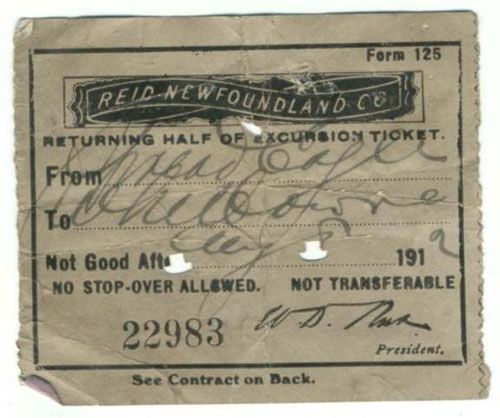 Form 125
REID NEWFOUNDLAND CO
RETURNING HALF OF EXCURSION TICKET.
From Spread Eagle
To
Not Good After Aug 5 1912
NO STOP-OVER ALLOWED. NOT TRANSFERABLE
22983 W. D. Reid
President.
See Contract on Back.